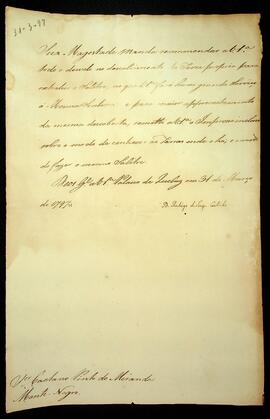 31-3-97
Sua Magestade manda recommendar a V. S.ª
todo o desvelo no descobrimento da Terra propria para
extrahir o Salitre, no que V. S.ª fará hum grande Serviço
á Mesma Senhora: e para maior approveitamento
da mesma descoberta, remetto a V. S.ª o Impresso incluso
sobre o modo de conhecer as Terras onde o ha, e o modo
de fazer o mesmo Salitre.
Deos G.de a V. S.ª Palacio de Queluz em 31 de Março
de 1797.
D. Rodrigo de Souza Coutinho
S.r Caetano Pinto de Miranda
Monte Negro.